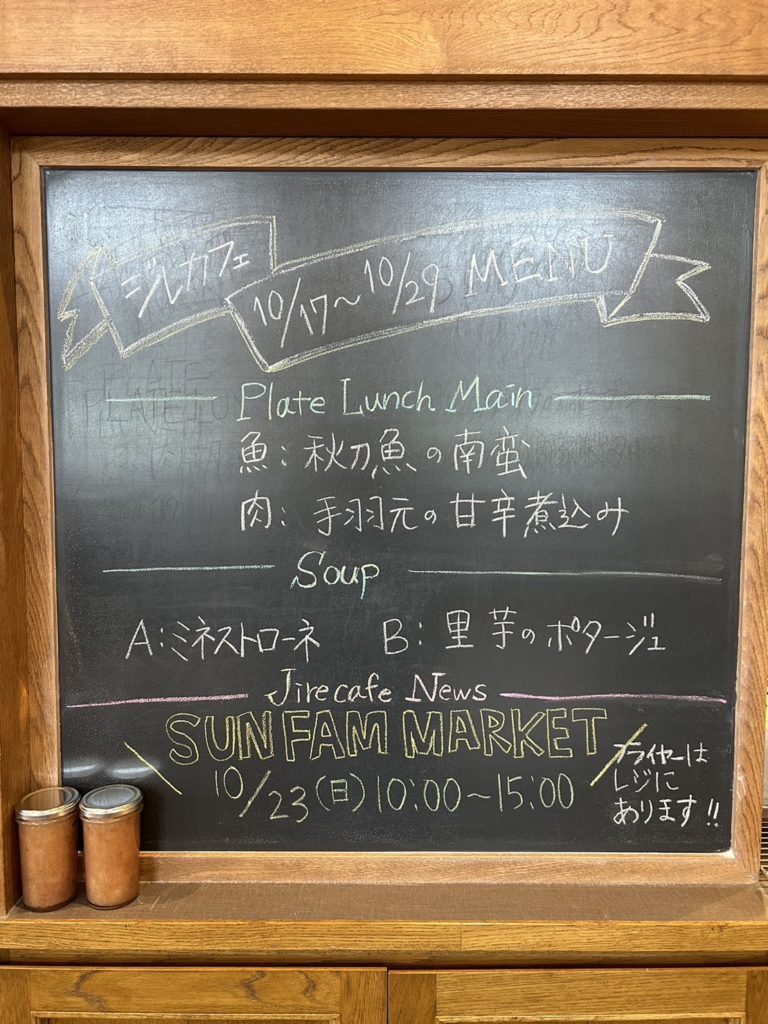 ジルカフェ
10/17〜10/29 MENU
Plate Lunch Main
魚：秋刀魚の南蛮
肉：手羽元の甘辛煮込み
Soup
A：ミネストローネ B：里芋のポタージュ
Jirecafe News
SUN FAM MARKET
10/23(日)10:00〜15:00
フライヤーは
レジに
あります!!